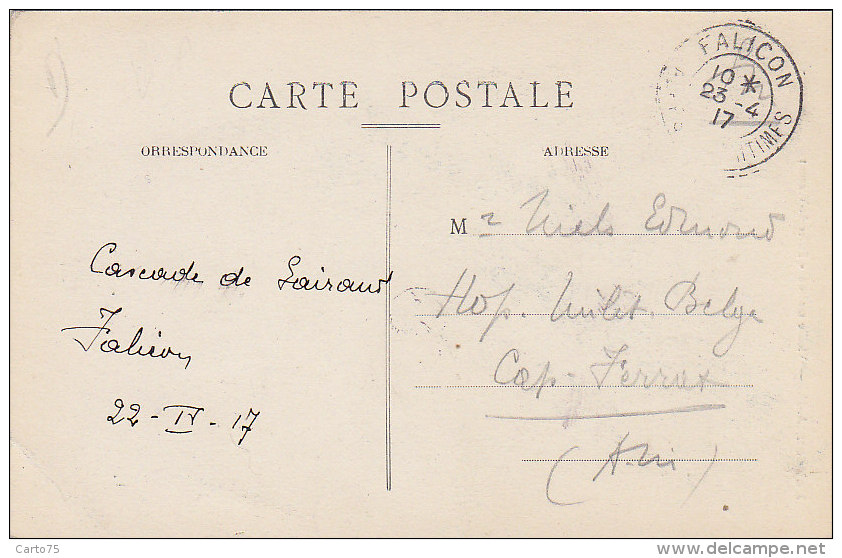 CARTE POSTALE
ORRESPONDANCE
ADRESSE
FALICON
10 *
23 - 4
17
TIMES
Cascade de Gairaut
Falicon
22 - IV - 17
Mr Niels Edmond
Hop. Milit. Belge
Cap-Ferrat
(A. M.)
Carto75
www.delcampe.net